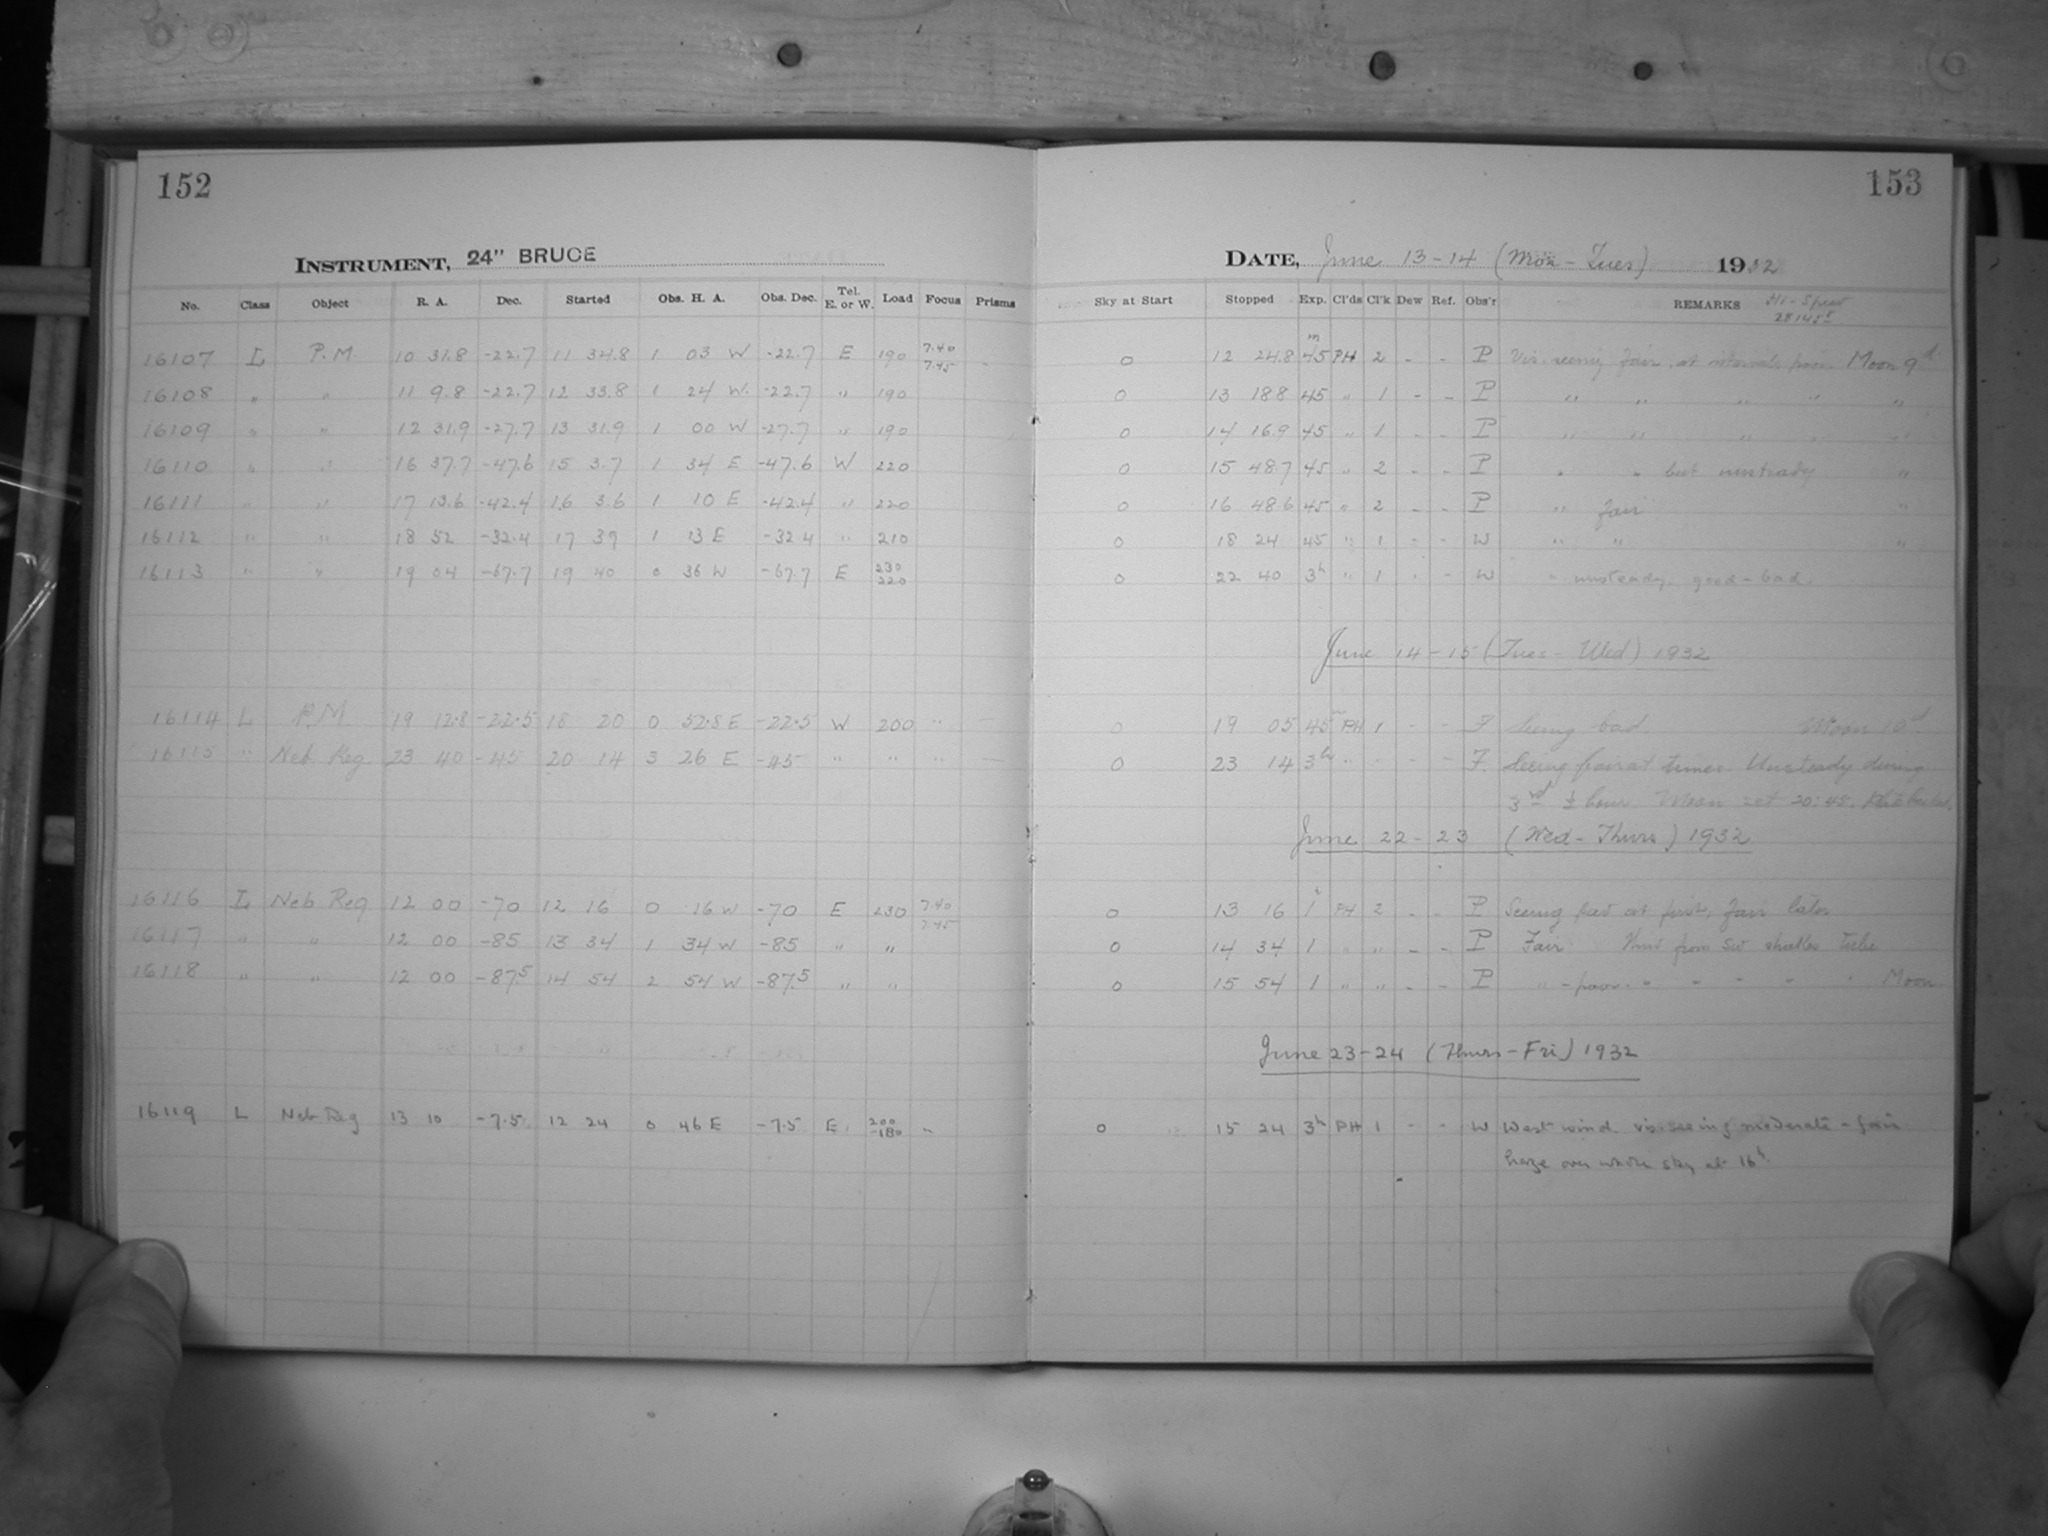 152
153
INSTRUMENT, 24" BRUCE
DATE, June 13-14 (Mon-Tues) 1932
No. Class Object R. A. Dec. Started Obs. H. A. Obs. Dec. Tel. E. or W. Load Focus Prisms Sky at Start Stopped Exp. Cl'ds Cl'k Dew Ref. Obs'r REMARKS
16107 L P.M. 10 31.8 -22.7 11 34.8 1 03 W -22.7 E 190 7.40 7.45 - 0 12 24.8 45m PH 2 - - P Vis. seeing fair, at intervals poor. Moon 9d
16108 " " 11 9.8 -22.7 12 33.8 1 24 W. -22.7 " 190 0 13 18.8 45 " 1 - - P " " " " "
16109 " " 12 31.9 -27.7 13 31.9 1 00 W -27.7 " 190 0 14 16.9 45 " 1 - - P " " " " "
16110 " " 16 37.7 -47.6 15 3.7 1 34 E -47.6 W 220 0 15 48.7 45 " 2 - - P " " but unsteady "
16111 " " 17 13.6 -42.4 16 3.6 1 10 E -42.4 " 220 0 16 48.6 45 " 2 - - P " fair "
16112 " " 18 52 -32.4 17 39 1 13 E -32.4 " 210 0 18 24 45 " 1 - - W " " "
16113 " " 19 04 -67.7 19 40 0 36 W -67.7 E 230 220 0 22 40 3h " 1 - - W " unsteady, good-bad.
June 14-15 (Tues-Wed) 1932
16114 L P.M 19 12.8 -22.5 18 20 0 52.8 E -22.5 W 200 " - 0 19 05 45m PH 1 - - F Seeing bad. Moon 10d
16115 " Neb Reg 23 40 -45 20 14 3 26 E -45 " " " - 0 23 14 3h " - - F. Seeing fair at times. Unsteady during
3rd ½ hour Moon set 20:45.
June 22-23 (Wed-Thurs) 1932
16116 L Neb Reg 12 00 -70 12 16 0 16 W -70 E 230 7.40 7.45 0 13 16 1h PH 2 - - P Seeing bad at first, fair later
16117 " " 12 00 -85 13 34 1 34 W -85 " " 0 14 34 1 " " - - P Fair Wind from SW shakes Tube
16118 " " 12 00 -87.5 14 54 2 54 W -87.5 " " 0 15 54 1 " " - - P " - poor. " " " " Moon.
June 23-24 (Thurs-Fri) 1932
16119 L Neb Reg 13 10 -7.5 12 24 0 46 E -7.5 E 200 -180 " 0 15 24 3h PH 1 - - W West wind vis. seeing moderate - fair
haze over whole sky at 16h.